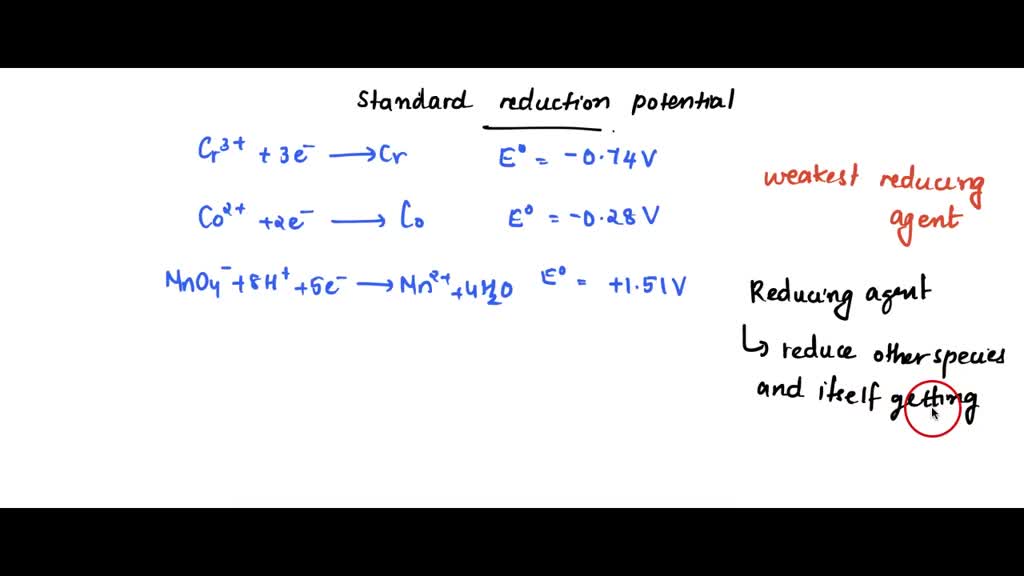 Standard reduction potential
Cr³⁺ + 3e⁻ ⟶ Cr E⁰ = -0.74 V
Co²⁺ +2e⁻ ⟶ Co E⁰ = -0.28 V
MnO₄⁻ + 8H⁺ + 5e⁻ ⟶ Mn²⁺ + 4H₂O E⁰ = +1.51 V
weakest reducing
agent
Reducing agent
↳ reduce other species
and itself getting